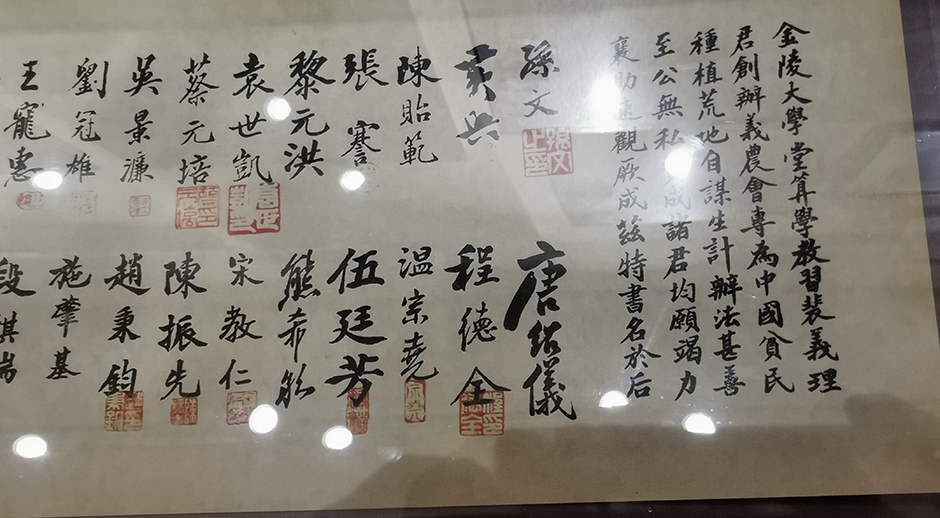 金陵大學堂算學教習裴義理
君創辦義農會專為中國貧民
種植荒地自謀生計辦法甚善
至公無私成諸君均願竭力
襄助速觀厥成茲特書名於后
孫文
唐紹儀
黃興
程德全
陳貽範
溫宗堯
張謇
伍廷芳
黎元洪
熊希齡
袁世凱
宋教仁
蔡元培
陳振先
吳景濂
趙秉鈞
劉冠雄
施肇基
王寵惠
段祺瑞